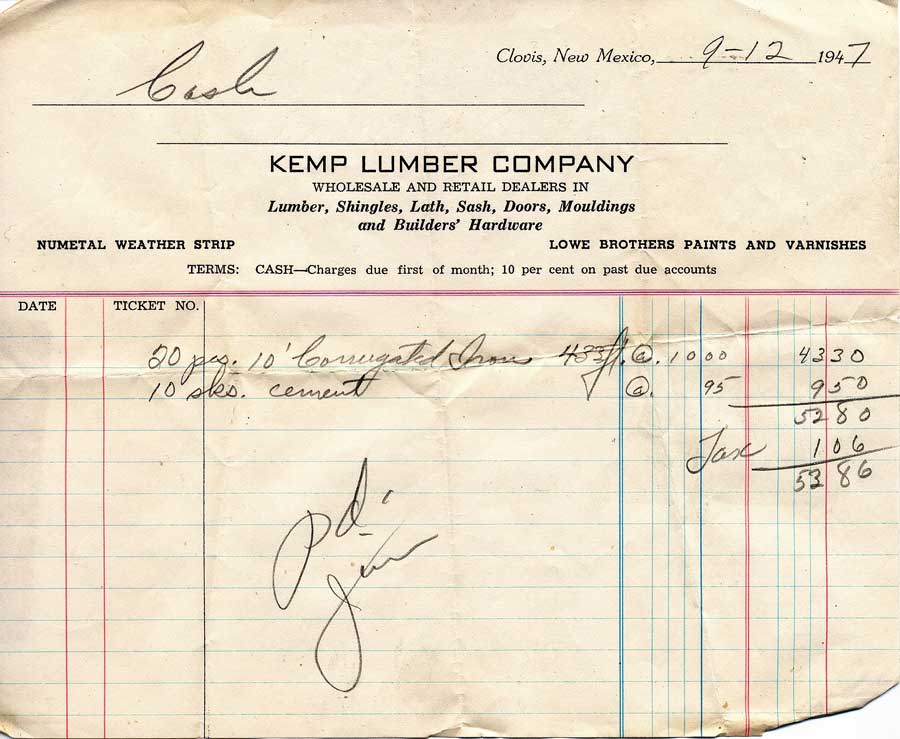 Clovis, New Mexico, 9-12 1947
Cash
KEMP LUMBER COMPANY
WHOLESALE AND RETAIL DEALERS IN
Lumber, Shingles, Lath, Sash, Doors, Mouldings
and Builders' Hardware
NUMETAL WEATHER STRIP LOWE BROTHERS PAINTS AND VARNISHES
TERMS: CASH—Charges due first of month; 10 per cent on past due accounts
DATE TICKET NO.
20 pcs. 10' Corrugated Iron 433 ft. @. 1000 4330
10 sks. cement @. 95 950
5280
Tax 106
5386
Pd.